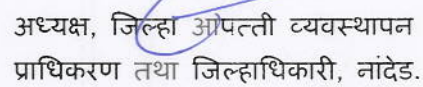 अध्यक्ष, जिल्हा आपत्ती व्यवस्थापन
प्राधिकरण तथा जिल्हाधिकारी, नांदेड.